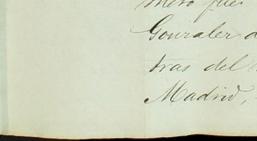 mero que
Gonzalez
tras del
Madrid,